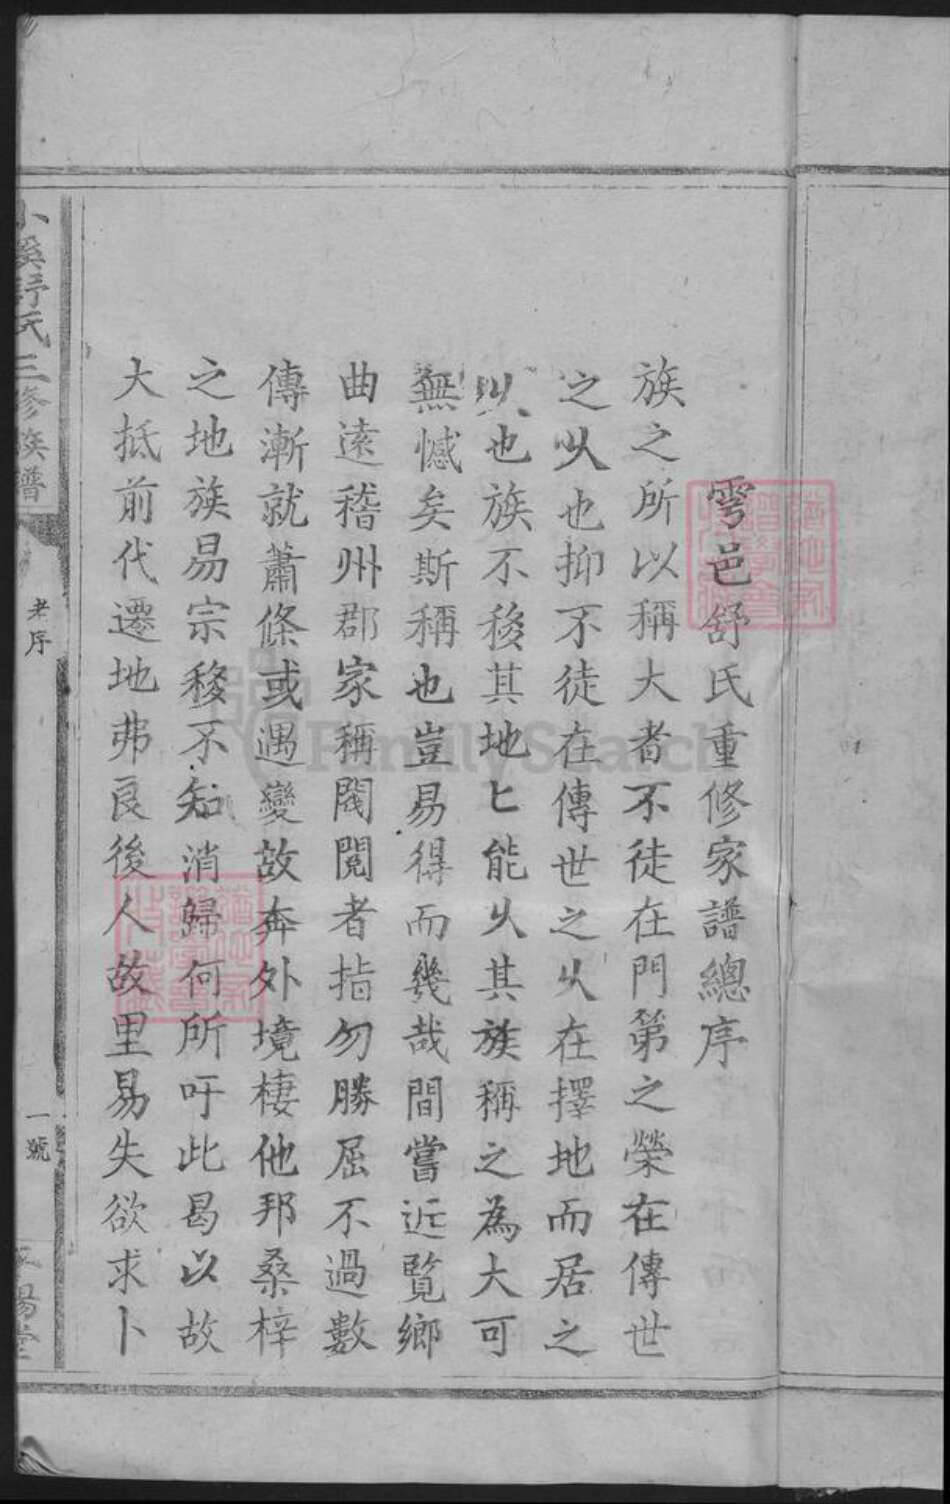 雩邑舒氏重修家譜總序
族之所以稱大者不徒在門第之榮在傳世
之以也抑不徒在傳世之乆在擇地而居之
以也族不移其地匕能乆其族稱之為大可
無憾矣斯稱也豈易得而幾哉間嘗近覽鄉
曲遠稽州郡家稱閥閱者指勿勝屈不過數
傳漸就蕭條或遇變故奔外境棲他邦桑梓
之地族易宗移不知消歸何所吁此曷以故
大抵前代遷地弗良後人故里易失欲求卜
小溪舒氏三修族譜
老序
一號
FamilySearch